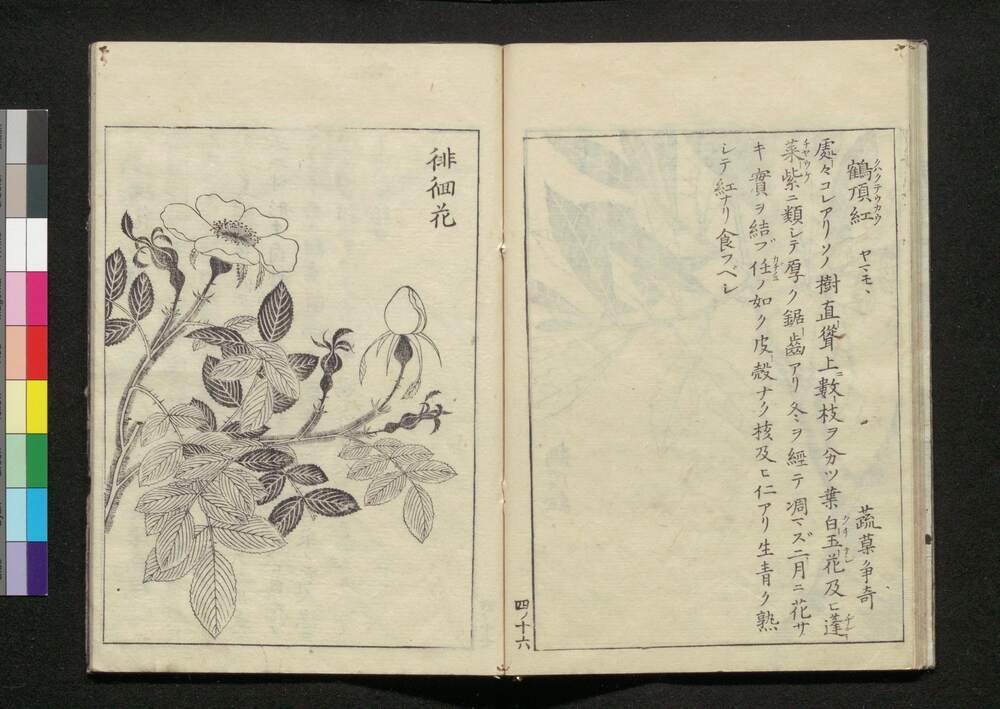 鶴頂紅 ヤマモヽ 蔬菓争奇
處々コレアリソノ樹直聳上數枝ヲ分ツ葉白玉花及ヒ蓬
菜紫ニ類シテ厚ク鋸齒アリ冬ヲ經テ凋マズ二月ニ花サ
キ實ヲ結ブ任ノ如ク皮殻ナク核及ヒ仁アリ生青ク熟
シテ紅ナリ食フベシ
四ノ十六
徘徊花